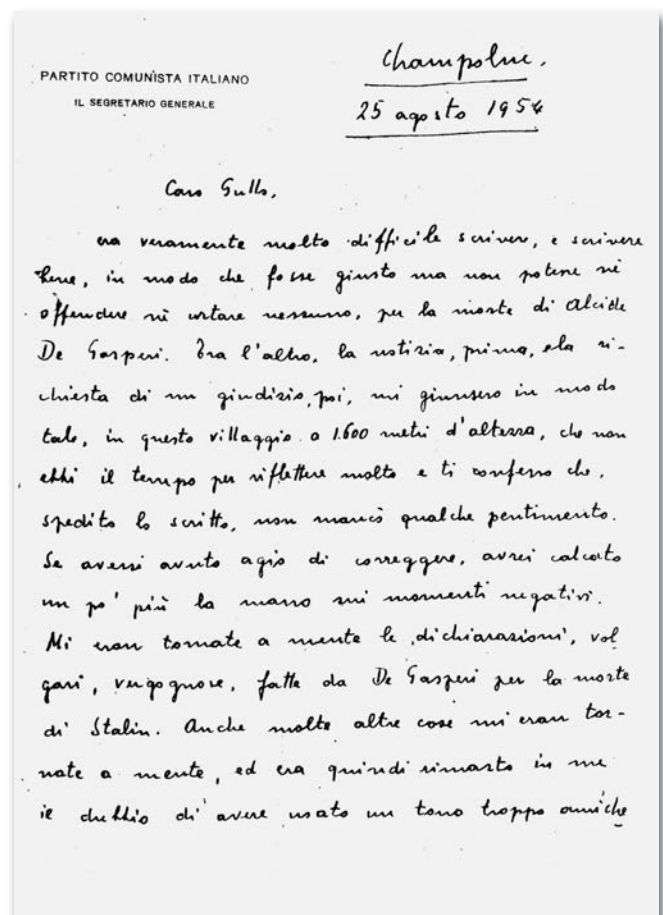 PARTITO COMUNISTA ITALIANO
IL SEGRETARIO GENERALE
Champoluc,
25 agosto 1954
Caro Gullo,
era veramente molto difficile scrivere, e scrivere
bene, in modo che fosse giusto ma non potesse nè
offendere nè urtare nessuno, per la morte di Alcide
De Gasperi. Tra l'altro, la notizia, prima, e la ri-
chiesta di un giudizio, poi, mi giunsero in modo
tale, in questo villaggio a 1.600 metri d'altezza, che non
ebbi il tempo per riflettere molto e ti confesso che,
spedito lo scritto, non mancò qualche pentimento.
Se avessi avuto agio di correggere, avrei calcato
un po' più la mano sui momenti negativi.
Mi eran tornate a mente le dichiarazioni, vol
gari, vergognose, fatte da De Gasperi per la morte
di Stalin. Anche molte altre cose mi eran tor-
nate a mente, ed era quindi rimasto in me
il dubbio di avere usato un tono troppo amiche